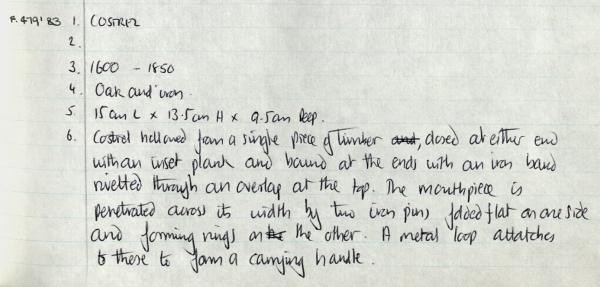 F.479'83 1. COSTREL
2.
3. 1600 - 1850
4. Oak and iron.
5 15cm L x 13.5cm H x 9.5cm Deep.
6. Costrel hollowed from a single piece of timber and, closed at either end
with an inset plank and bound at the ends with an iron band
rivetted through an overlap at the top. The mouthpiece is
penetrated across its width by two iron pins folded flat on one side
and forming rings on the other. A metal loop attatches
to these to form a carrying handle.